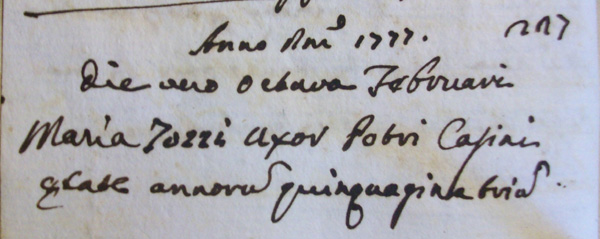 Anno Dni 1777. 227
Die vero octava Februarii
Maria Tozzi uxor Petri Casini
ętate annorū quinquaginta triū